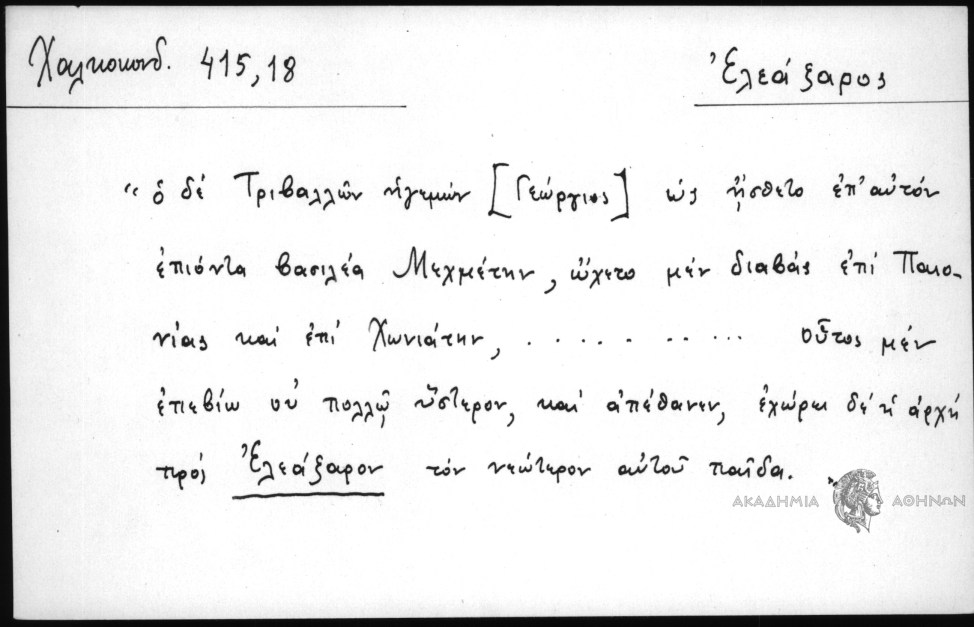 Χαλκοκονδ. 415,18
Ἐλεάζαρος
“ὁ δέ Τριβαλλῶν ἡγεμών [Γεώργιος] ὡς ᾔσθετο ἐπ’ αὐτόν
ἐπιόντα βασιλέα Μεχμέτην, ᾤχετο μέν διαβάς ἐπί Παιο-
νίας καί ἐπί Χωνιάτην, . . . . . . . . . . . οὗτος μέν
ἐπεβίω οὐ πολλῷ ὕστερον, καί ἀπέθανεν, ἐχώρει δέ ἡ ἀρχή
πρός Ἐλεάζαρον τόν νεώτερον αὐτοῦ παῖδα.”
ΑΚΑΔΗΜΙΑ ΑΘΗΝΩΝ